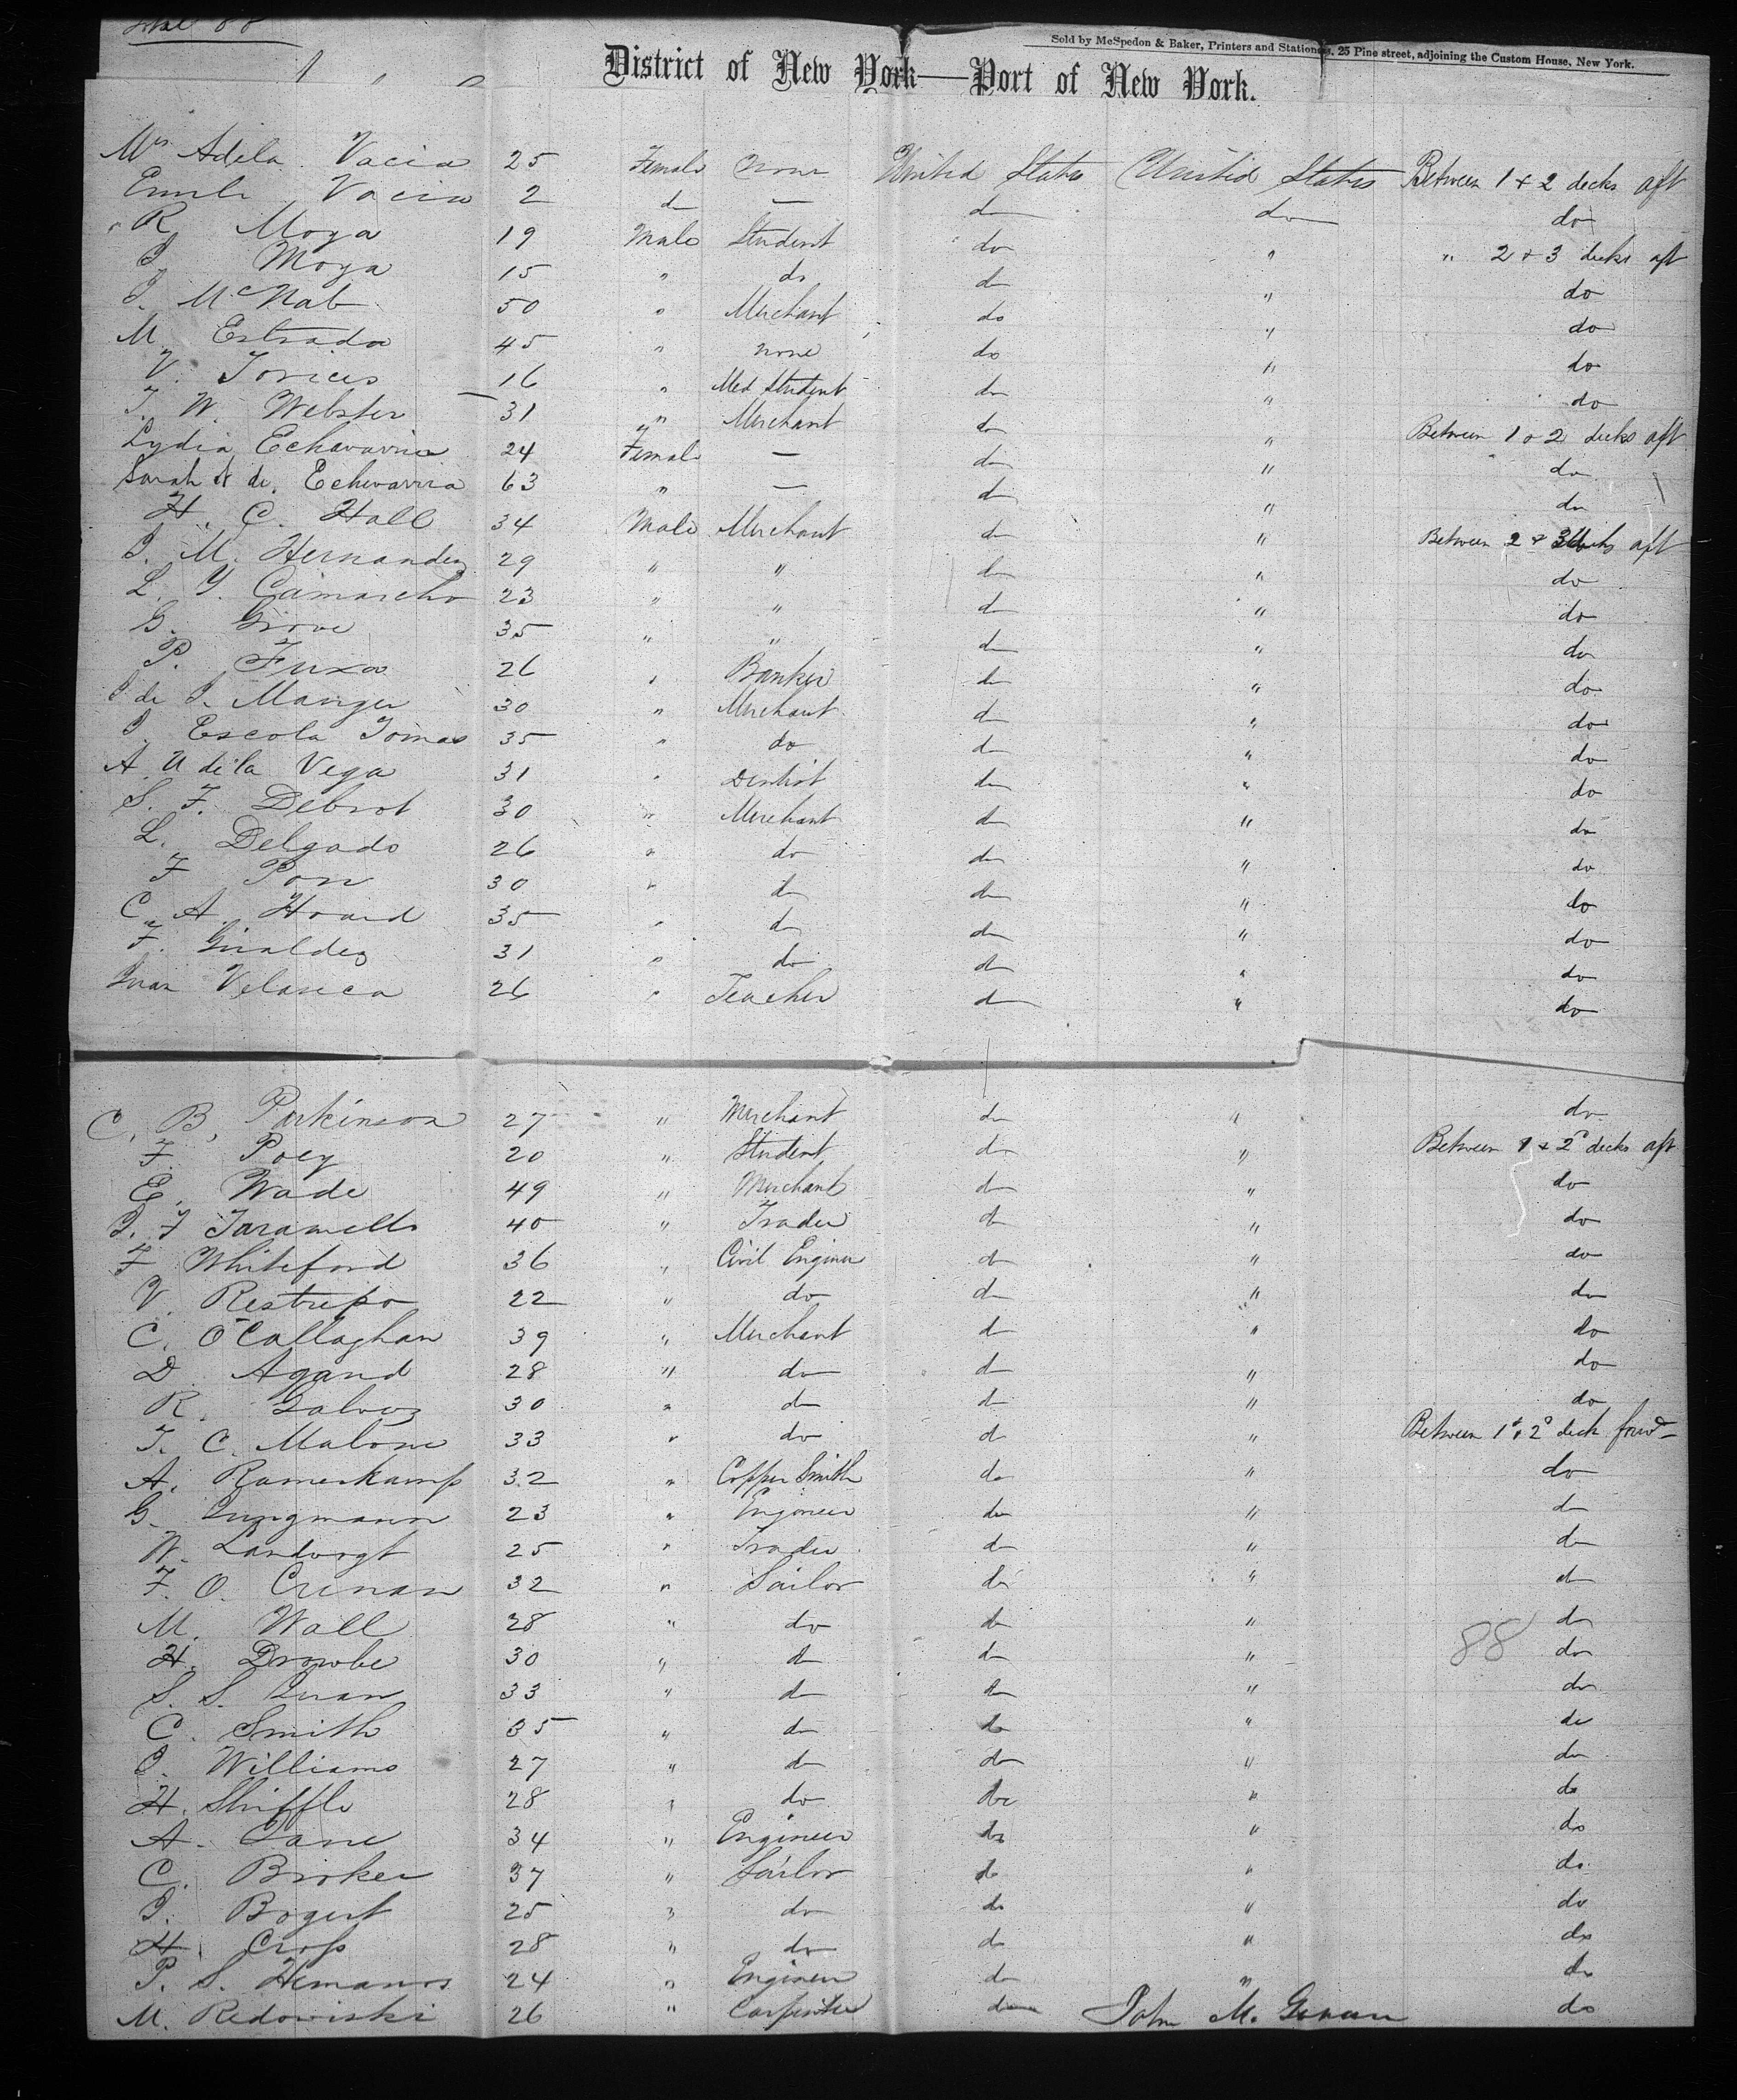 Total 88
Sold by McSpedon & Baker, Printers and Stationers, 25 Pine street, adjoining the Custom House, New York.
District of New York—Port of New York.
Mrs Adela Vacia 25 Female None United States United States Between 1 & 2 decks aft
Vacia 2 do — do do do
R Moya 19 Male Student do " " 2 & 3 decks aft
J Moya 15 " do do " do
J. McNab 50 " Merchant do " do
M Estrada 45 " none do " do
V. 16 " Med Student do " do
T. W. Webster 31 " Merchant do " Between 1 & 2 decks aft
Lydia Echavarria 24 Female — do " do
Sarah de Echevarria 63 " — do " do
H. C. Hall 34 Male Merchant do " Between 2 & 3 decks aft
J. M. Hernandez 29 " " do " do
L. Y. Camancho 23 " " do " do
G. Grove 35 " " do " do
P. Fuxa 26 " Banker do " do
J de J. Manger 30 " Merchant do " do
J. Escola Tomas 35 " do do " do
A. U de la Vega 31 " Dentist do " do
S. F. Debrot 30 " Merchant do " do
L. Delgado 26 " do do " do
F Pon 30 " do do " do
C. A. Hoard 35 " do do " do
F. Giraldez 31 " do do " do
Juan 26 " Teacher do " do
C. B. Parkinson 27 " Merchant do " do
F. Poey 20 " Student do " Between 1 & 2d decks aft
E. Wade 49 " Merchant do " do
J. F Jaramello 40 " Trader do " do
F Whiteford 36 " Civil Engineer do " do
V. Restrepo 22 " do do " do
C. O'Callaghan 39 " Merchant do " do
D Agand 28 " do do " do
R. Galvez 30 " do do " do
T. C. Malone 33 " do do " Between 1st & 2d deck forwd
A. Ramerkamp 32 " Copper Smith do " do
G. Jungmann 23 " Engineer do " do
W. Landvogt 25 " Trader do " do
F. O. Crenan 32 " Sailor do " do
M. Wall 28 " do do " do
88
H. 30 " do do " do
S. S. 33 " do do " do
C. Smith 35 " do do " do
J. Williams 27 " do do " do
H. Shiffle 28 " do do " do
A. Lane 34 " Engineer do " do
C. Broker 37 " Sailor do " do
J. Bogert 25 " do do " do
H. Cross 28 " do do " do
P. S. Hemanos 24 " Engineer do " do
M. Redowiski 26 " Carpenter do do
John M.